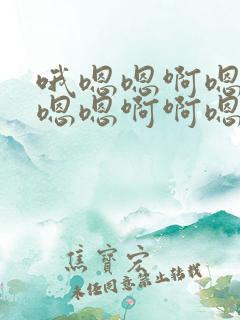 哦嗯嗯啊嗯
嗯嗯啊啊嗯
焦寳宏
未经同意禁止转载